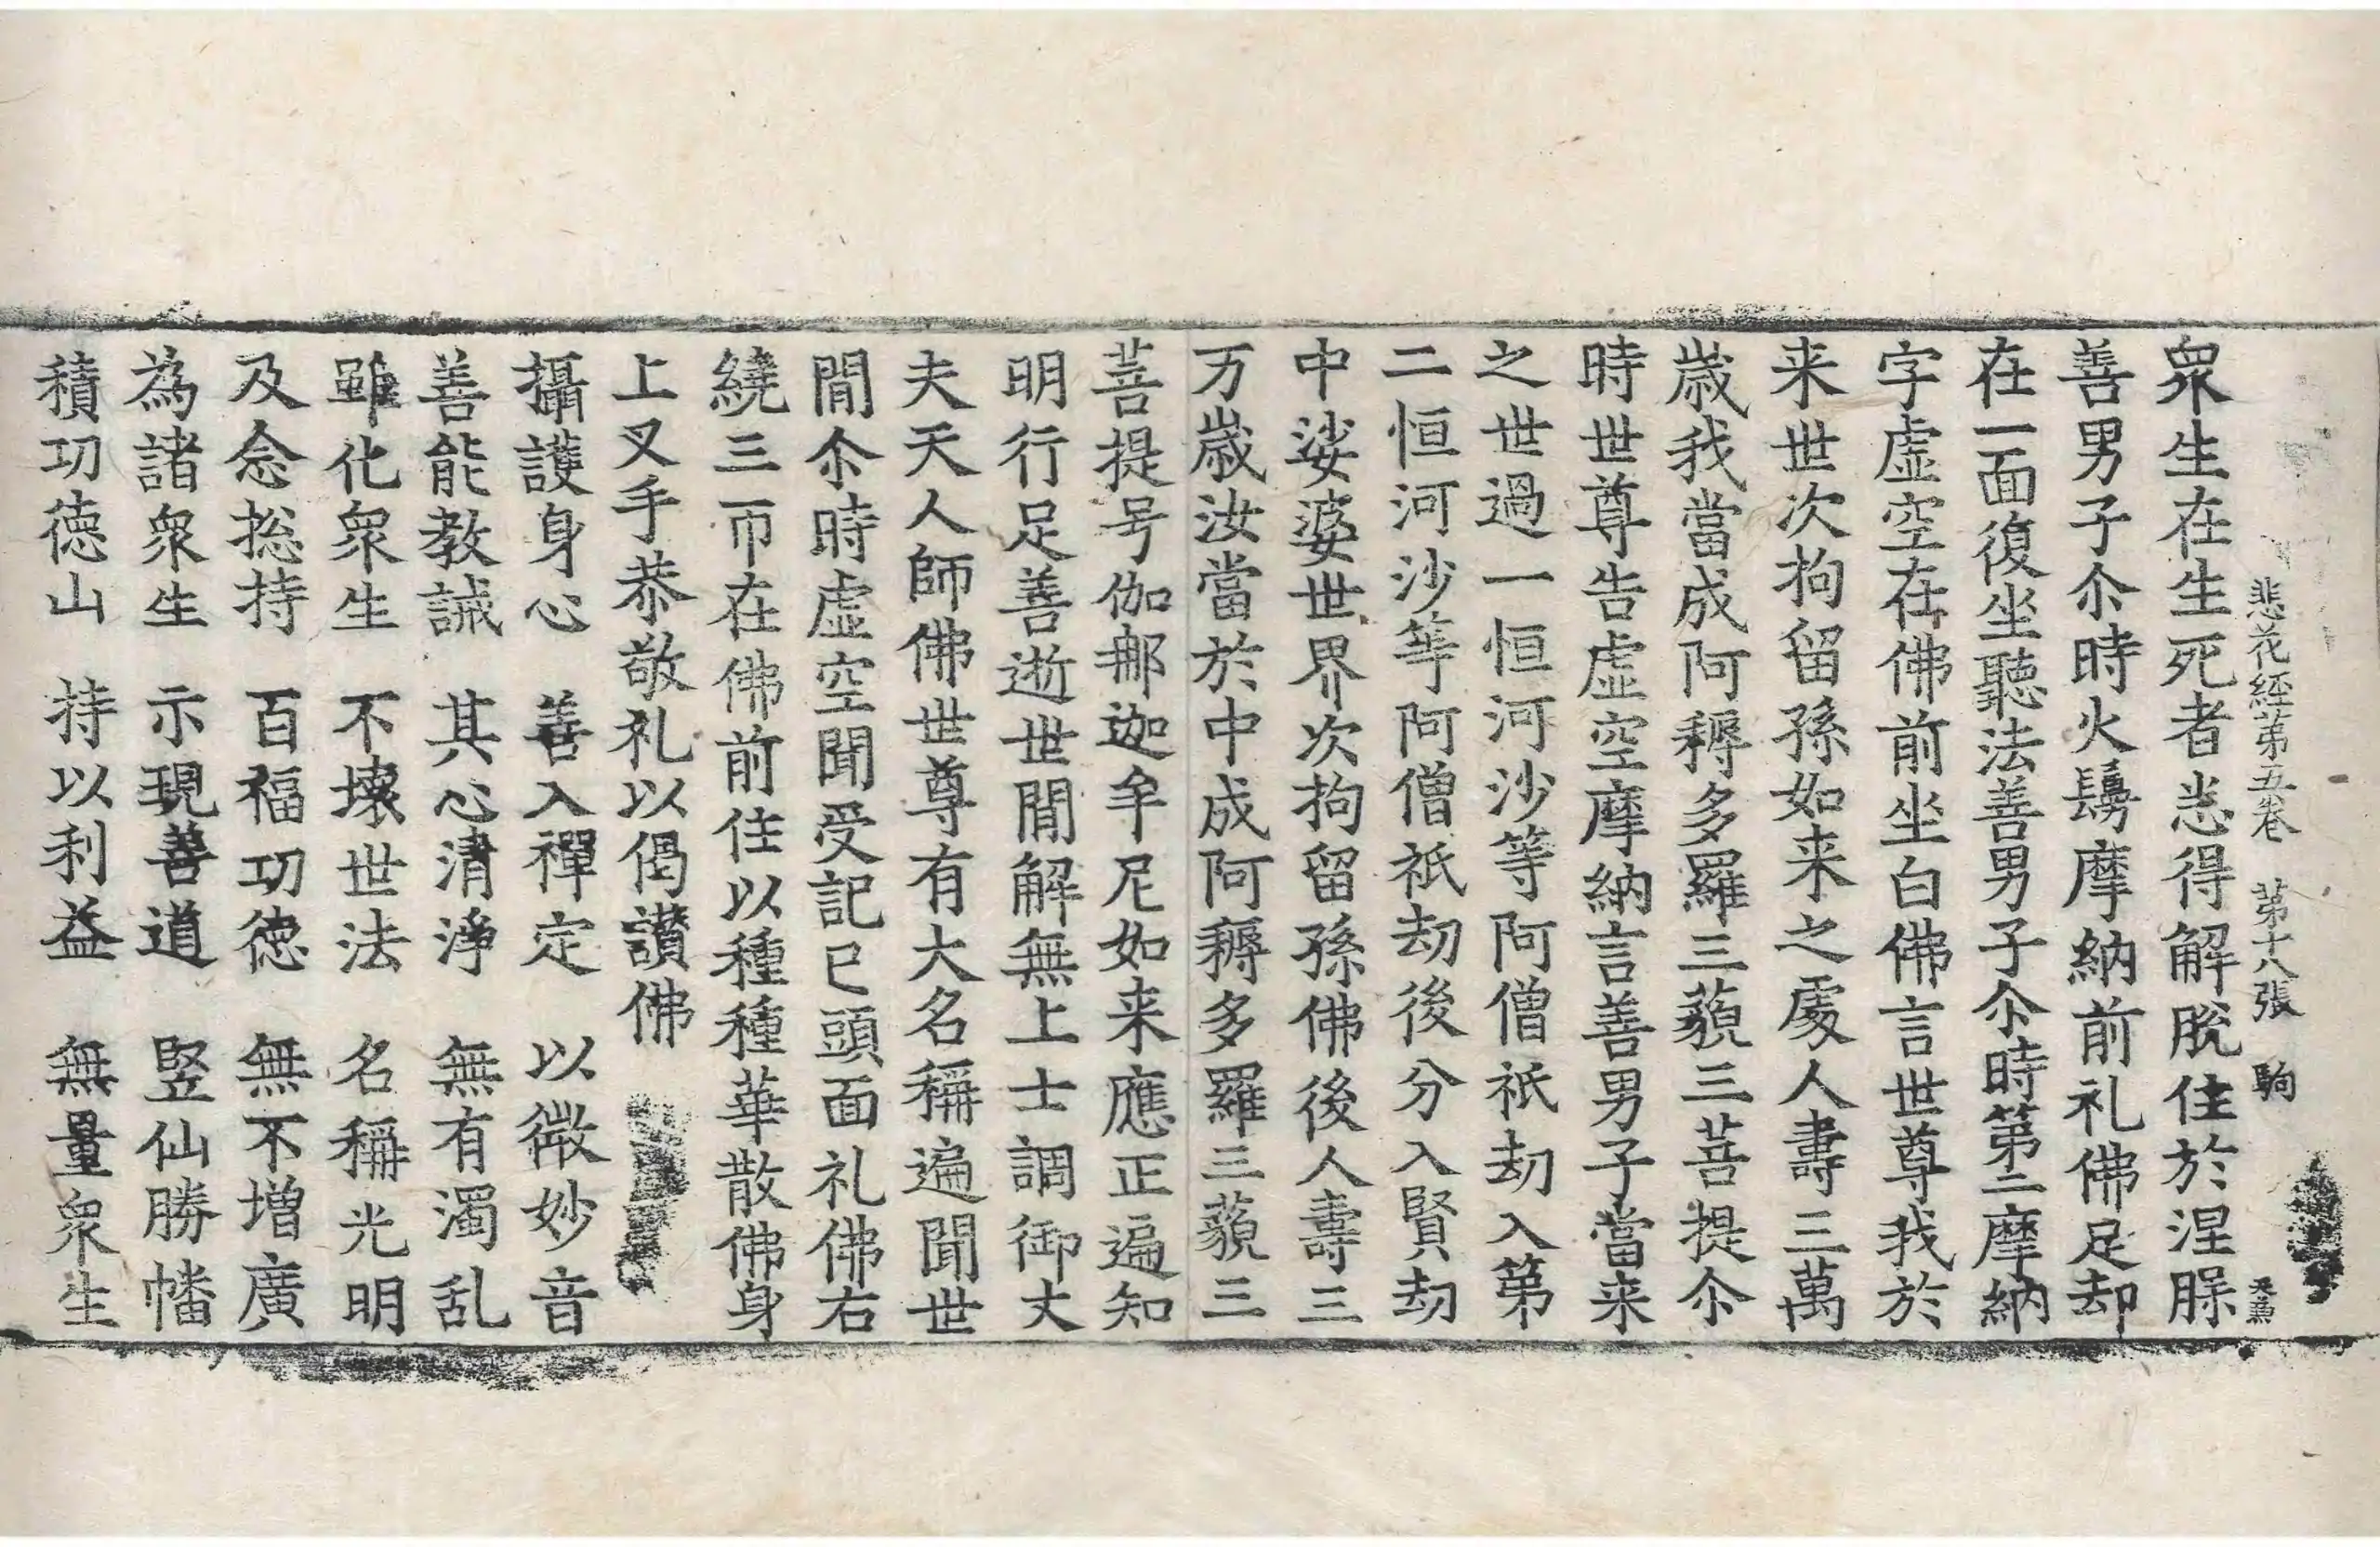 悲花経第五巻 第十八張 駒
眾生在生死者悉得解脫住於涅槃
善男子尒時火鬘摩納前礼佛足却
在一面復坐聽法善男子尒時第二摩納
字虛空在佛前坐白佛言世尊我於
来世次拘留孫如来之處人壽三萬
歲我當成阿耨多羅三藐三菩提尒
時世尊告虛空摩納言善男子當来
之世過一恒河沙等阿僧祇劫入第
二恒河沙等阿僧祇劫後分入賢劫
中娑婆世界次拘留孫佛後人壽三
万歲汝當於中成阿耨多羅三藐三
菩提号伽那迦牟尼如来應正遍知
明行足善逝世閒解無上士調御丈
夫天人師佛世尊有大名稱遍聞世
閒尒時虛空聞受記已頭面礼佛右
繞三帀在佛前住以種種華散佛身
上叉手恭敬礼以偈讃佛
攝護身心 善入禪定 以微妙音
善能教誡 其心清淨 無有濁乱
雖化眾生 不壞世法 名稱光明
及念捴持 百福功德 無不增廣
為諸眾生 示現善道 竪仙勝幡
積功德山 持以利益 無量眾生